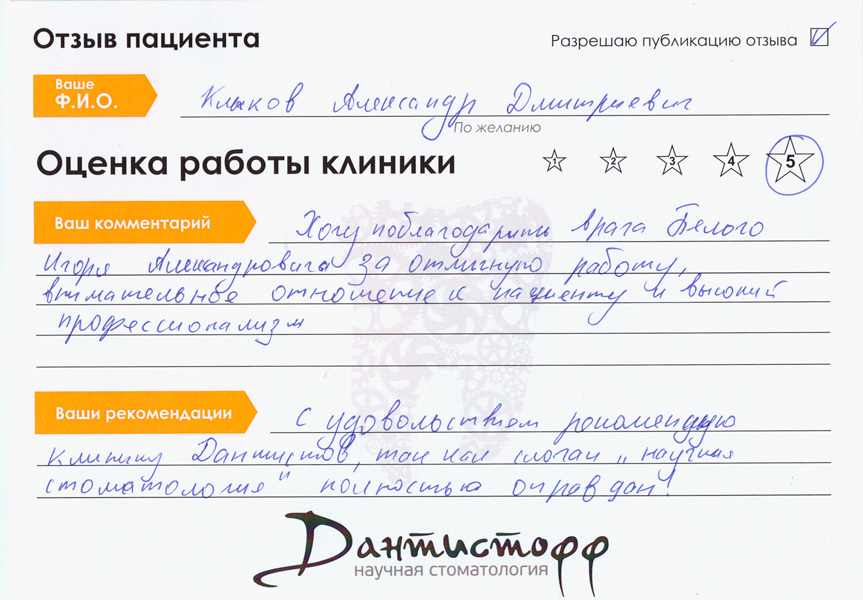 Отзыв пациента
Разрешаю публикацию отзыва
Ваше
Ф.И.О.
Клыков Александр Дмитриевич
По желанию
Оценка работы клиники
1 2 3 4 5
Ваш комментарий
Хочу поблагодарить врача Белого
Игоря Александровича за отличную работу,
внимательное отношение к пациенту и высокий
профессионализм
Ваши рекомендации
С удовольствием рекомендую
клинику Дантистов, так как слоган "научная
стоматология" полностью оправдан!
Дантистофф
научная стоматология